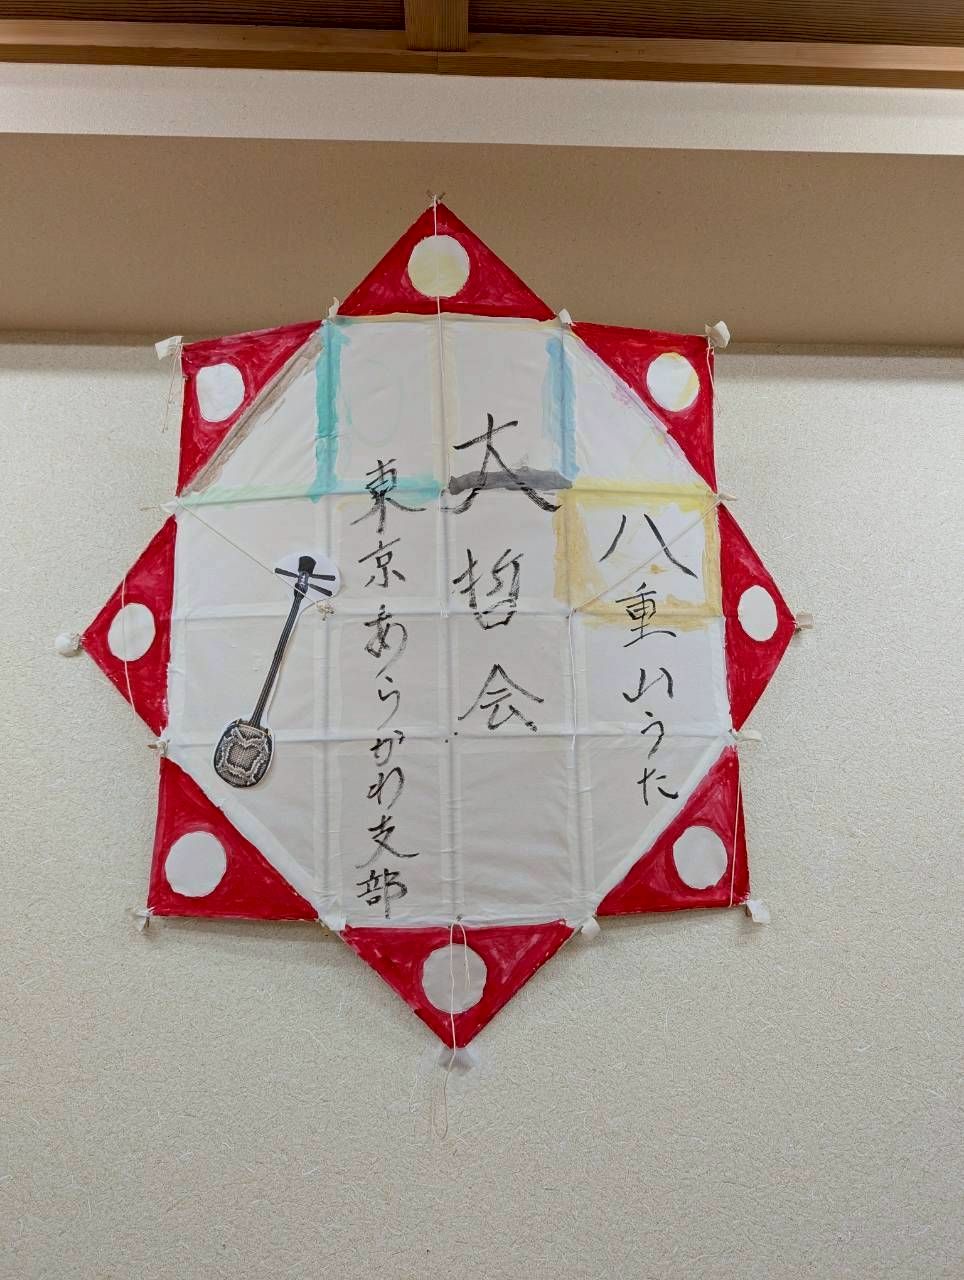 八重山うた
大哲会
東京あらかわ支部